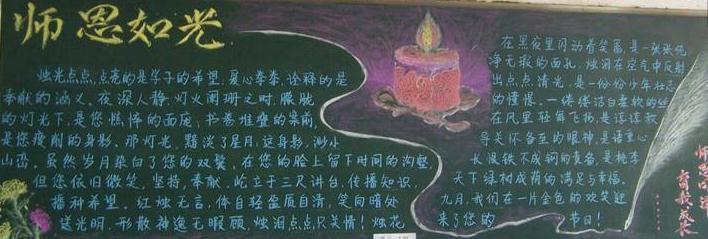 师恩如光
烛光点点,点亮的是学子的希望,爱心拳拳,诠释的是
奉献的涵义。夜深人静,灯火阑珊之时,朦胧
的灯光下,是您憔悴的面庞;书卷堆叠的案前,
是您瘦削的身影。那灯光,黯淡了星月,这身影,渺小
山峦。虽然岁月染白了您的双鬓,在您的脸上留下时间的沟壑,
但您依旧微笑,坚持,奉献,屹立于三尺讲台,传播知识,
播种希望。红烛无言,体自轻盈质自清,笑向暗处
送光明,形散神逸无暇顾,烛泪点点只关情!烛花
在黑夜里闪动着笑靥,是一张张纯
净无瑕的面孔,烛泪在空气中反射
出点点清光,是一份份少年壮志
的憧憬。一缕缕洁白柔软的丝
在风里轻舞飞扬,是谆谆教
导关怀备至的眼神,是语重心
长恨铁不成钢的责备,是桃李
天下绿树成荫的满足与幸福。
九月,我们在一片金色的欢笑迎
来了您的 节日!
育我成长